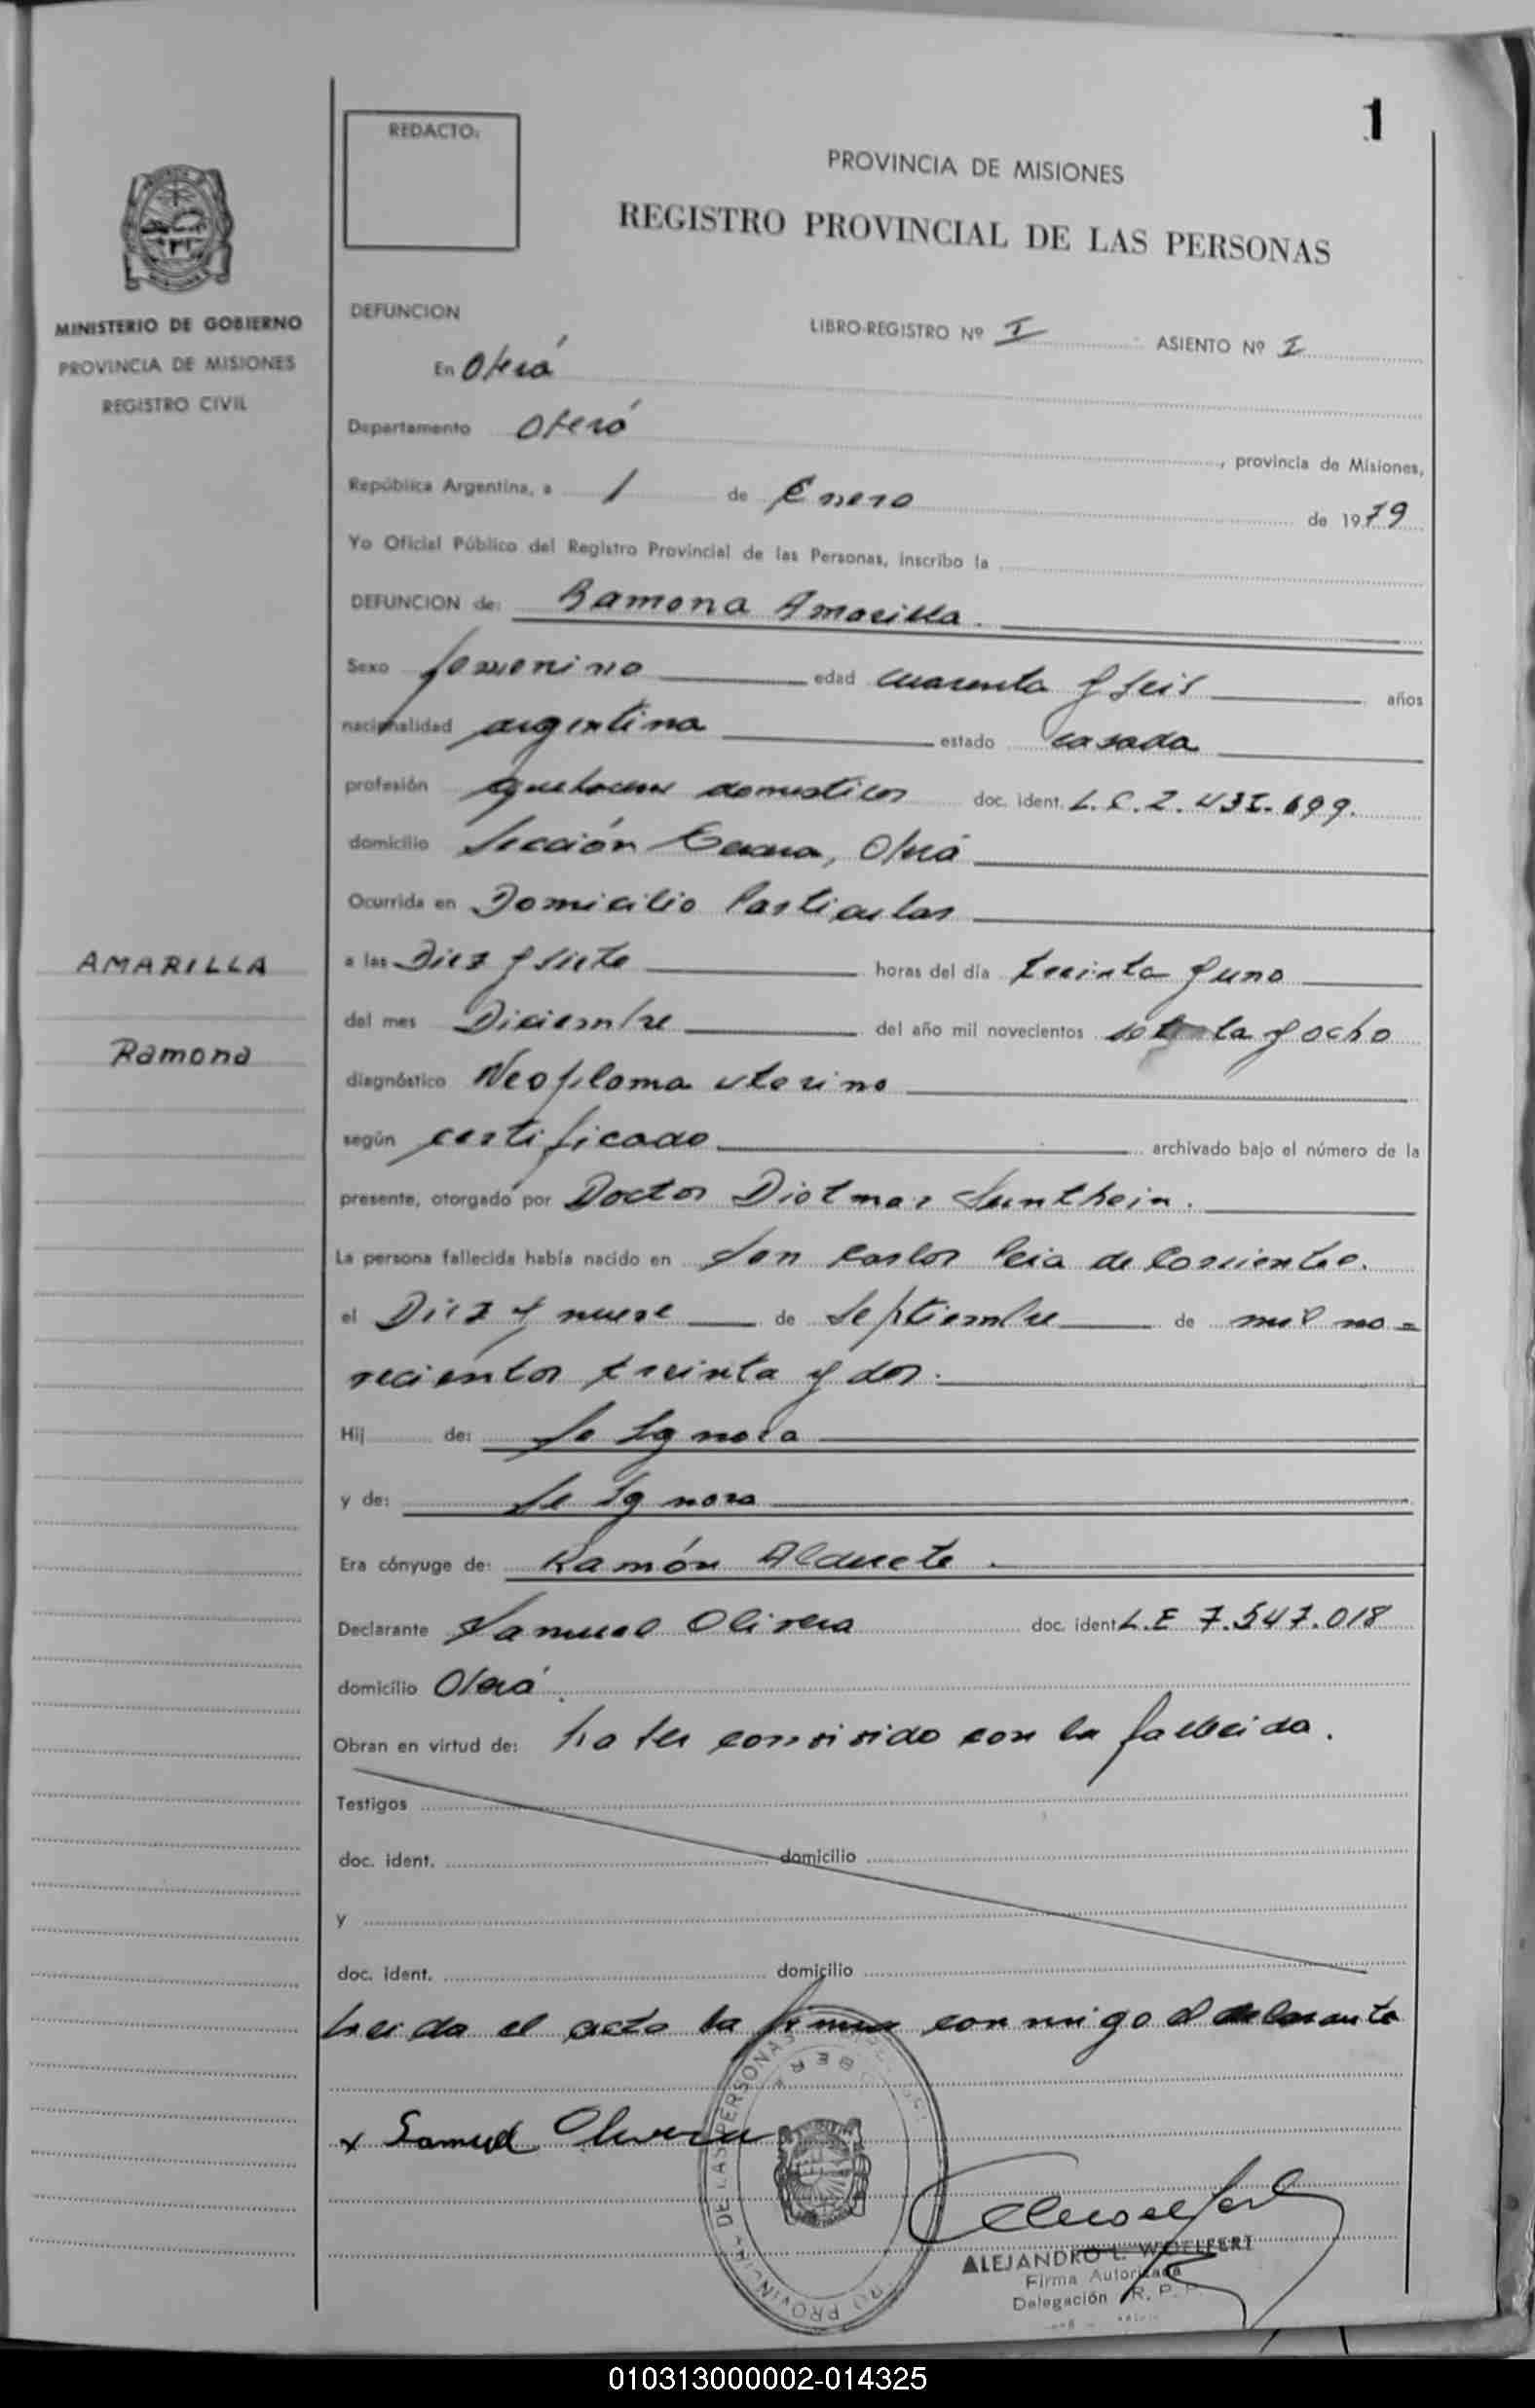 1
REDACTO:
PROVINCIA DE MISIONES
REGISTRO PROVINCIAL DE LAS PERSONAS
MINISTERIO DE GOBIERNO
PROVINCIA DE MISIONES
REGISTRO CIVIL
DEFUNCION
LIBRO-REGISTRO Nº I ASIENTO Nº I
En Oberá
Departamento Oberá, provincia de Misiones,
República Argentina, a 1 de Enero de 1979
Yo Oficial Público del Registro Provincial de las Personas, inscribo la
DEFUNCION de: Ramona Amarilla.
Sexo femenino edad cuarenta y seis años
nacionalidad argentina estado casada
profesión quehaceres domesticos doc. ident. L.C. 2.431.699.
domicilio Sección, Oberá
Ocurrida en Domicilio Particular
AMARILLA
Ramona
a las Diez y siete horas del día treinta y uno
del mes Diciembre del año mil novecientos setenta y ocho
diagnóstico Neoploma uterino
según certificado archivado bajo el número de la
presente, otorgado por Doctor Dietmar Sunthein.
La persona fallecida había nacido en San Carlos Pcia de Corrientes.
el Diez y nueve de Septiembre de mil no=
vecientos treinta y dos.
Hij de: Se Ignora
y de: Se Ignora
Era cónyuge de: Ramón Alderete.
Declarante Samuel Olivera doc. ident L.E 7.547.018
domicilio Oberá.
Obran en virtud de: haber convivido con la fallecida.
Testigos
doc. ident. domicilio
y
doc. ident. domicilio
Leida el acta la firma conmigo el declarante
x Samuel Olivera
DE LAS PERSONAS
RO PROVINCIAL
ALEJANDRO L. WOELFERT
Firma Autorizada
Delegación R. P.
010313000002-014325